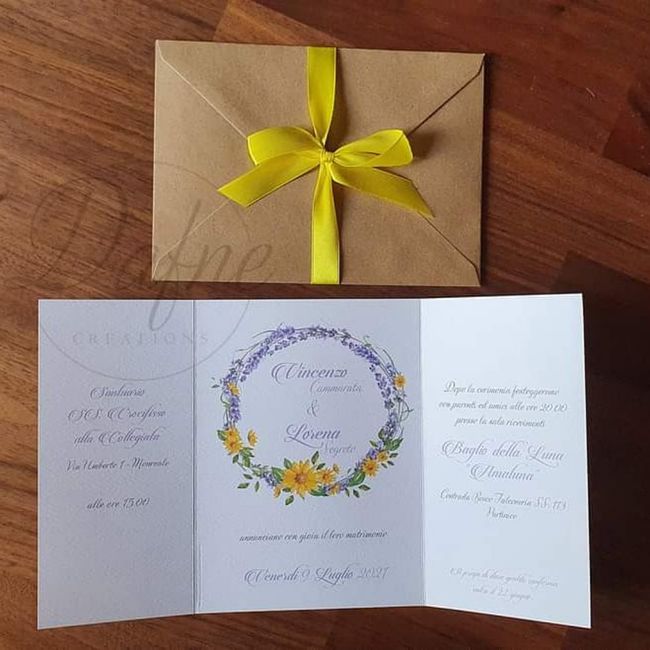 Dafne
CREATIONS
Santuario
SS. Crocifisso
alla Collegiata
Via Umberto 1 - Monreale
alle ore 15.00
Vincenzo
Cammarata
&
Lorena
Vegreto
annunciano con gioia il loro matrimonio
Venerdì 9 Luglio 2021
Dopo la cerimonia festeggeremo
con parenti ed amici alle ore 20.00
presso la sala ricevimenti
Baglio della Luna
"Analuna"
Contrada Bosco Falconeria S.S. 113
Partinico
Si prega di dare gentile conferma
entro il 22 giugno